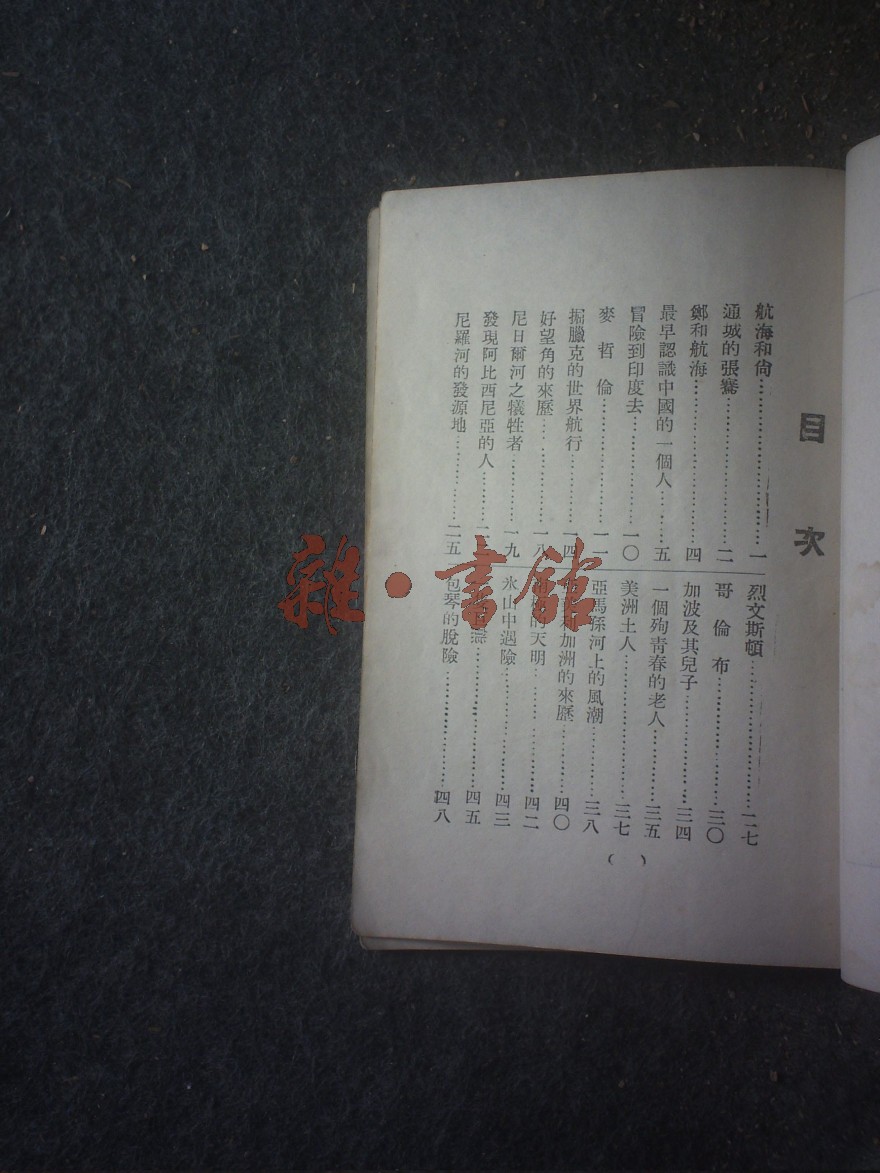 目次
航海和尙……一
通域的張騫……二
鄭和航海……四
最早認識中國的一個人……五
冒險到印度去……一〇
麥哲倫……一一
掘臘克的世界航行……一四
好望角的來歷……一八
尼日爾河之犧牲者……一九
發現阿比西尼亞的人……二
尼羅河的發源地……二五
烈文斯頓……二七
哥倫布……三〇
加波及其兒子……三四
一個殉靑春的老人……三五
美洲土人……三七
亞馬孫河上的風潮……三八
加洲的來歷……四〇
的天明……四二
氷山中遇險……四三
踪……四五
包琴的脫險……四八
（　）
雜·書館